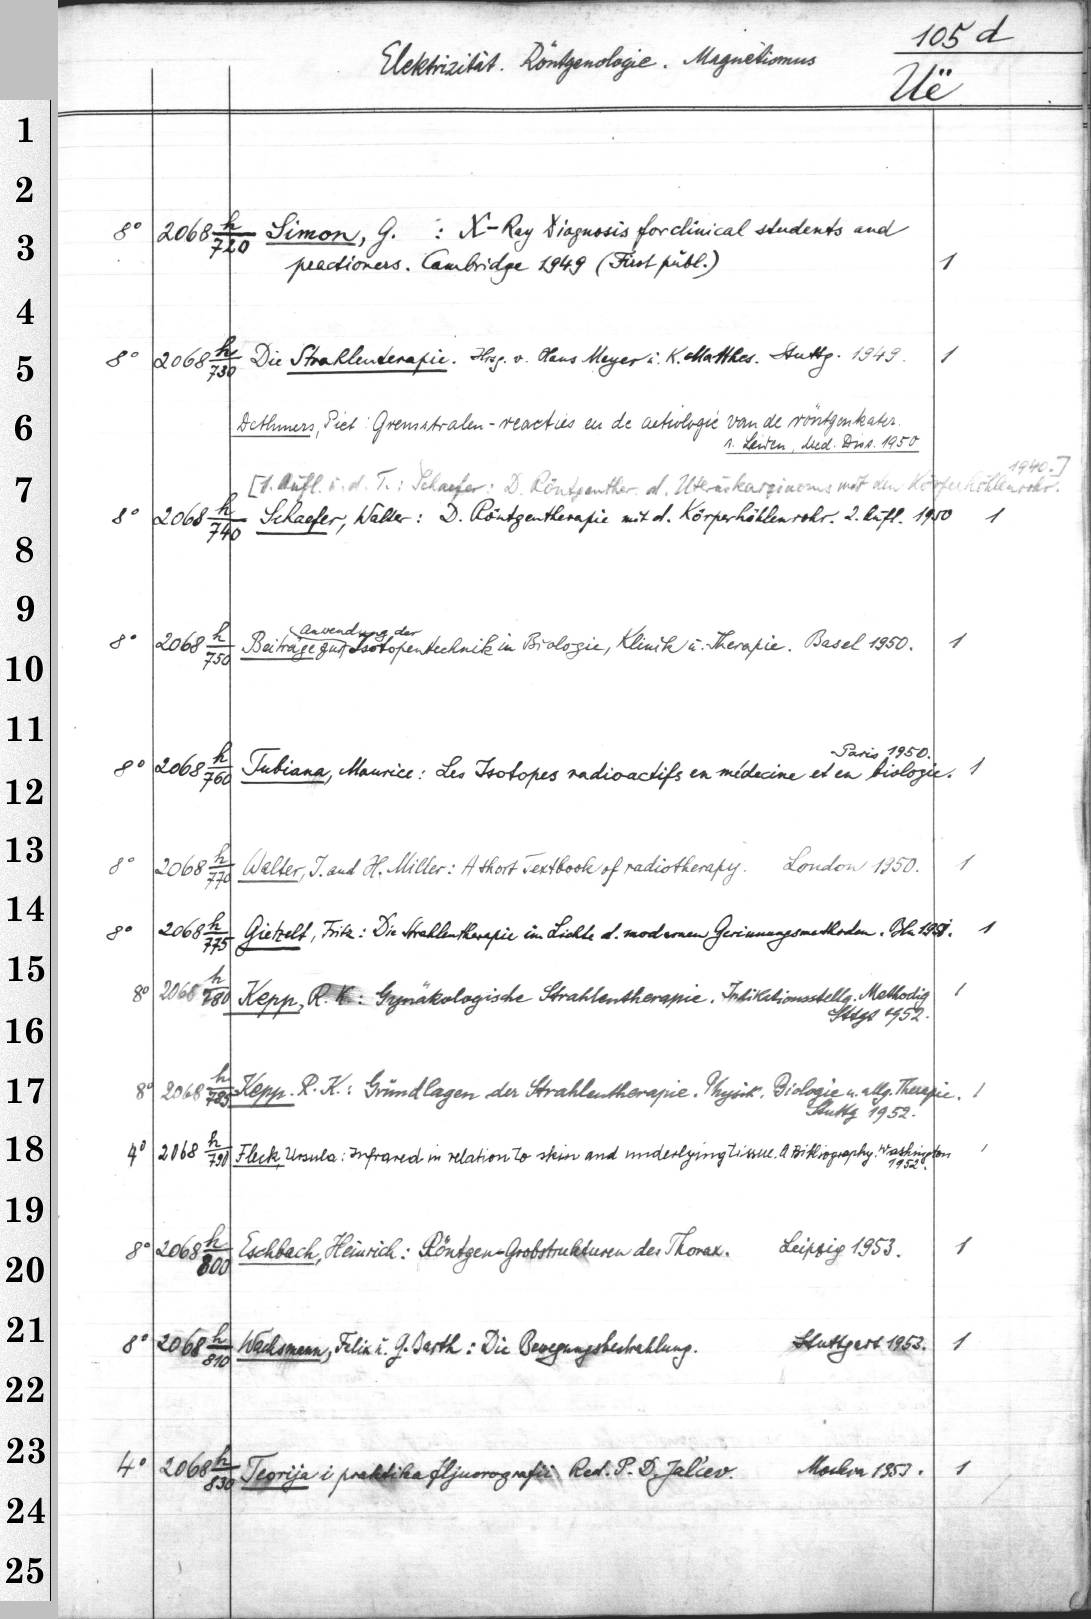 105 d
Elektrizität. Röntgenologie. Magnetismus
Uë
1
2
3
4
5
6
7
8
9
10
11
12
13
14
15
16
17
18
19
20
21
22
23
24
25
8° 2068 h/720 Simon, G. : X-Ray Diagnosis for clinical students and
practioners. Cambridge 1949 (First publ.) 1
8° 2068 h/730 Die Strahlenterapie. Hrsg. v. Hans Meyer u. K. Matthes. Stuttg. 1949. 1
Dethmers, Piet: Grensstralen-reacties en de aetiologie van de röntgenkater.
Leiden, Med. Diss. 1950
1940.]
[1. Aufl. u. d. T.: Schaefer: D. Röntgenther. d. Uteruskarzinoms mit dem Körperhöhlenrohr.
8° 2068 h/740 Schaefer, Walter: D. Röntgentherapie mit d. Körperhöhlenrohr. 2. Aufl. 1950 1
anwendung der
8° 2068 h/750 Beiträge zur Isotopentechnik in Biologie, Klinik u. Therapie. Basel 1950. 1
Paris 1950.
8° 2068 h/760 Tubiana, Maurice: Les Isotopes radioactifs en médecine et en biologie. 1
8° 2068 h/770 Walter, J. and H. Miller: A short Textbook of radiotherapy. London 1950. 1
8° 2068 h/775 Gietzelt, Fritz: Die Strahlentherapie im Lichte d. modernen Gerinnungsmethoden. Bln 1951. 1
8° 2068 h/780 Kepp, R. K.: Gynäkologische Strahlentherapie. Indikationsstellg. Methodig
Sttgt 1952. 1
8° 2068 h/785 Kepp. R. K.: Grundlagen der Strahlentherapie. Physik. Biologie u. allg. Therapie. 1
Stuttg 1952.
4° 2068 h/790 Fleck, Ursula: Infrared in relation to skin and underlying tissue. A Bibliography. Washington
1952. 1
8° 2068 h/800 Eschbach, Heinrich: Röntgen-Grobstrukturen des Thorax. Leipzig 1953. 1
8° 2068 h/810 Wachsmann, Felix u. G. Barth: Die Bewegungsbestrahlung. Stuttgart 1953. 1
4° 2068 h/830 Teorija i praktika fljuorografii Red. P. D. Jalcev. Moskva 1953. 1